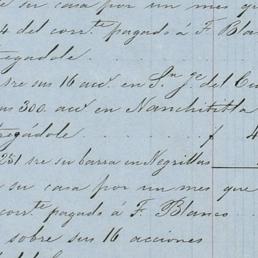 su casa por un mes que
4 del corr.te pagado á F. Blan
tregadole
sre sus 16 acc.s en S.n J.e del Cu
sus 300. acc.s en Nanchititla
tregadole f 4
251 sre su barra en Negrillas
su casa por un mes que
corr.te pagado á F. Blanco
sobre sus 16 acciones